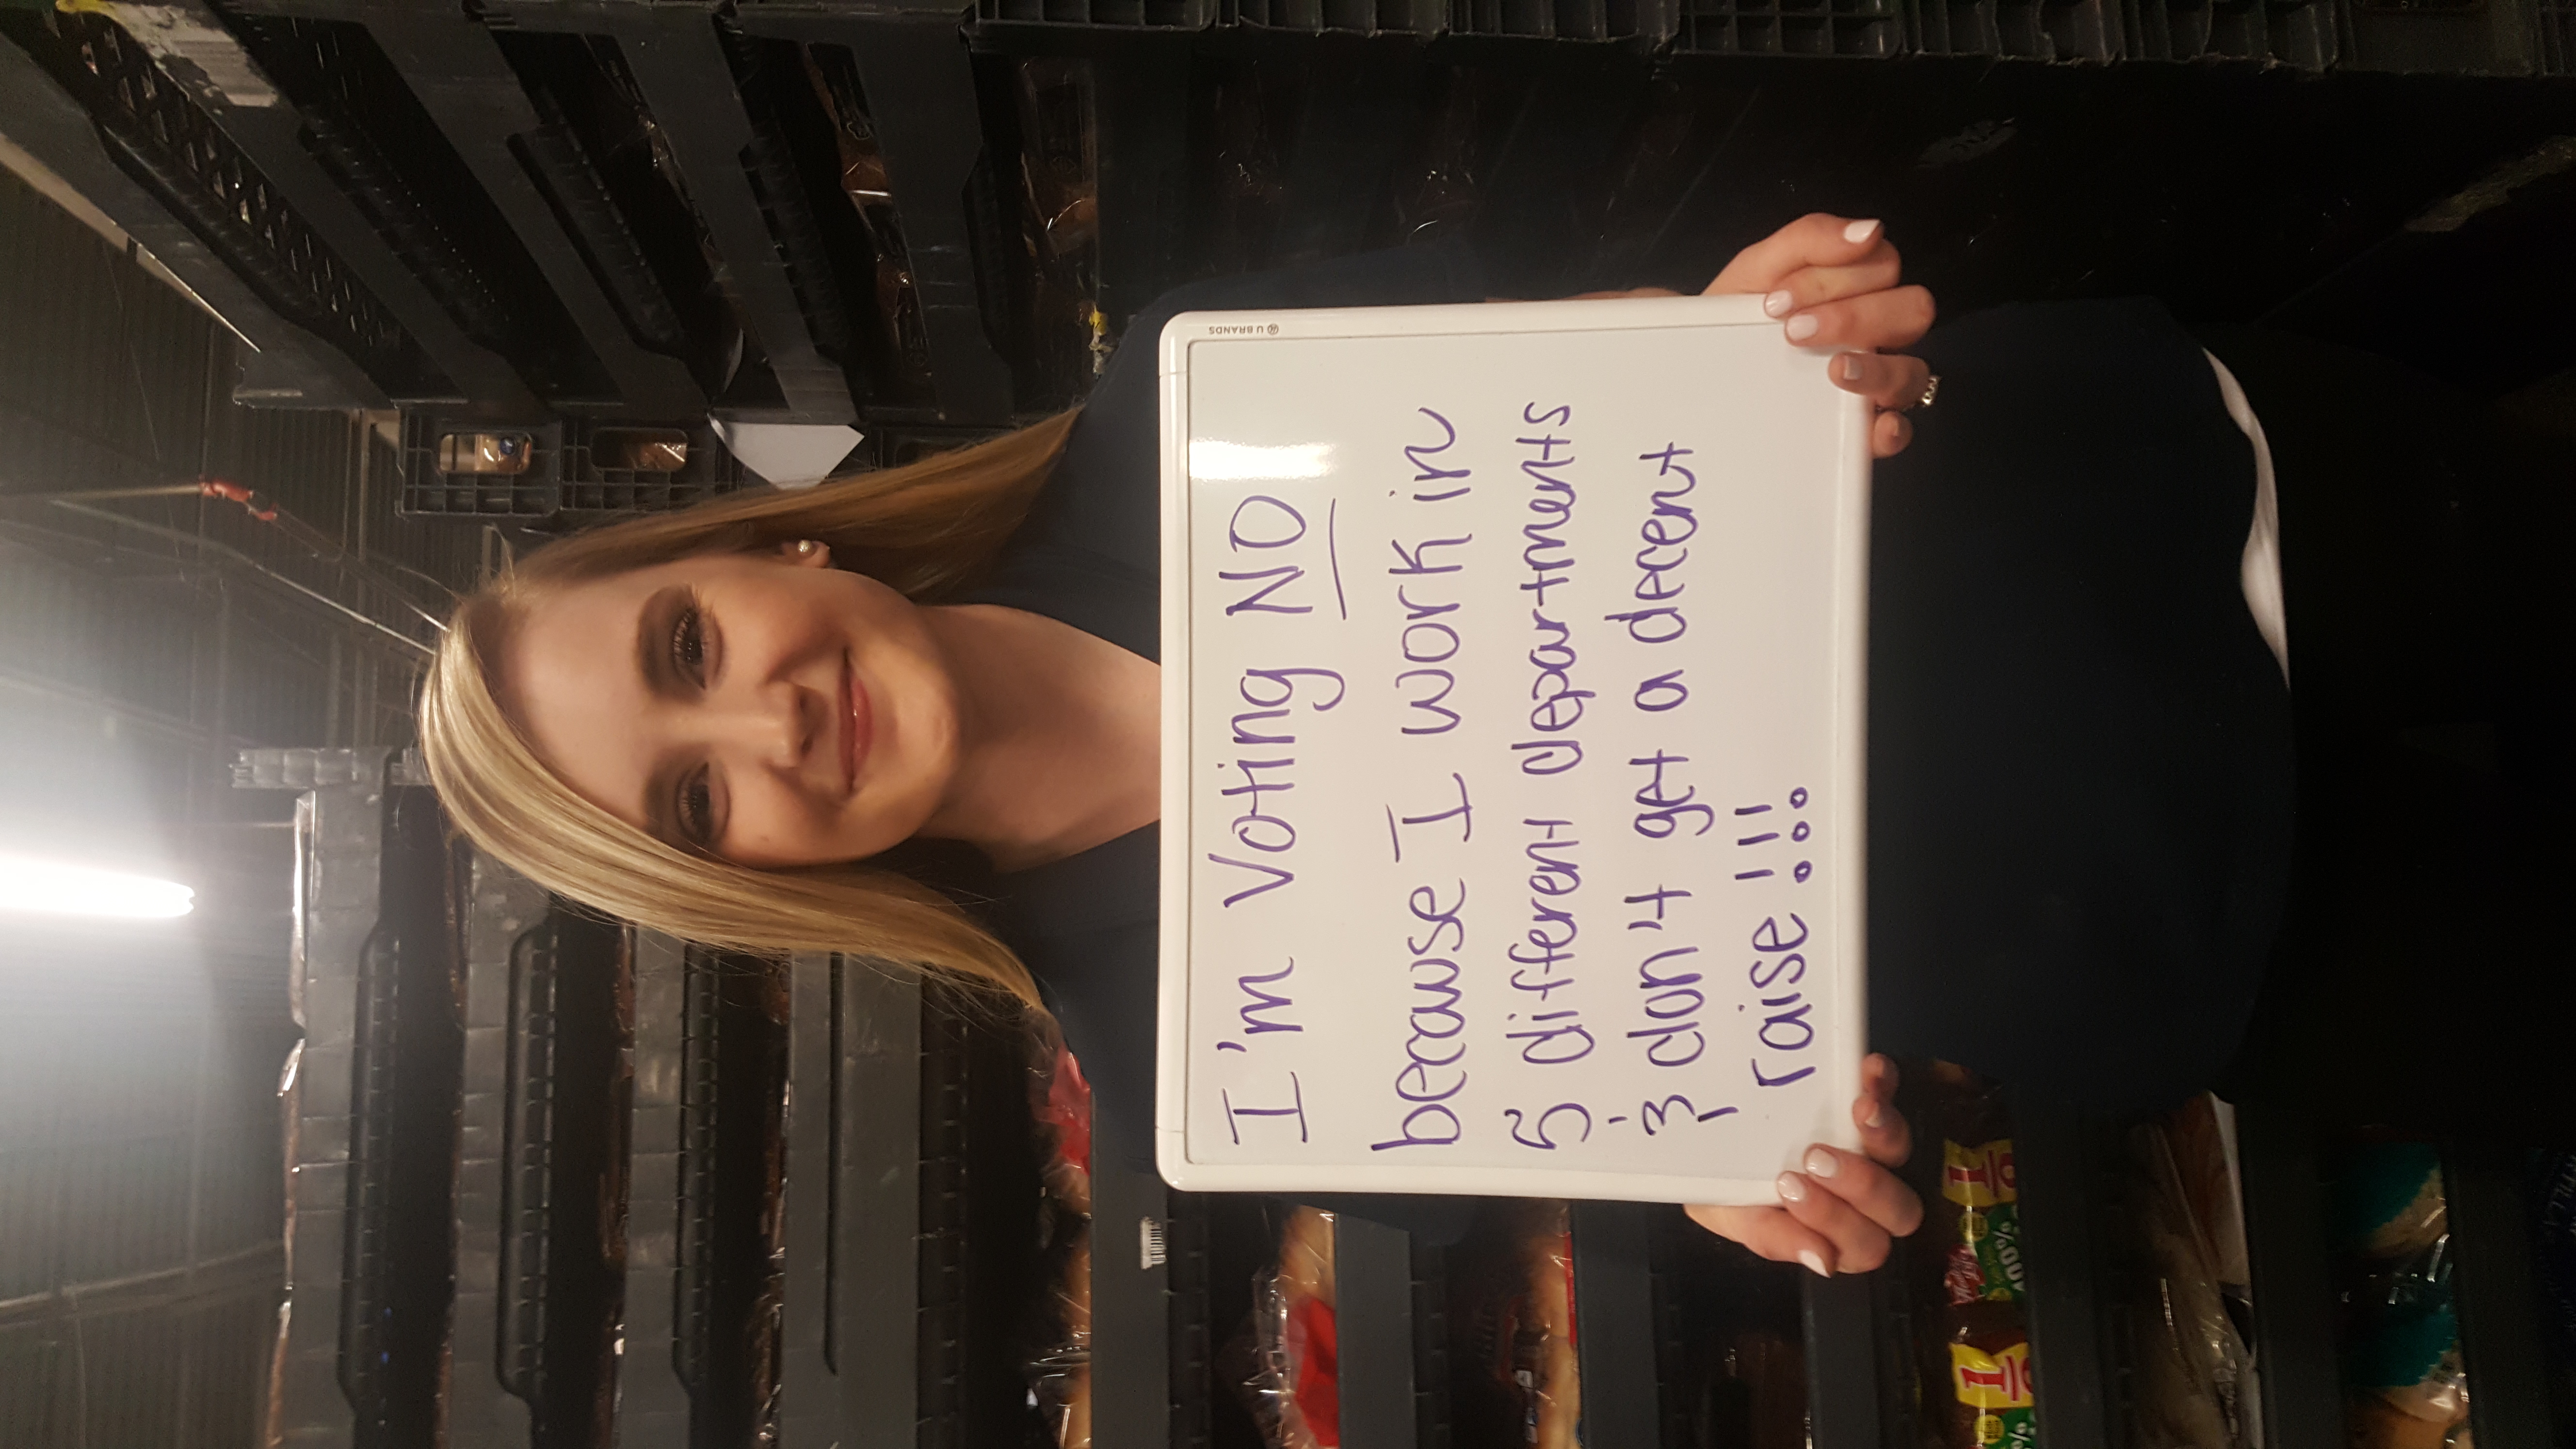 I'm Voting NO
because I work in
5 different departments
& don't get a decent
raise !!!
U BRANDS
100%
100%